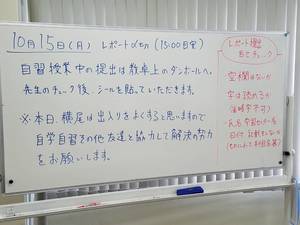 10月15日(月) レポート (15:00〆)
自習授業中の提出は教卓上のダンボールへ。
先生のチェック後、シールを貼っていただきます。
※本日、横尾は出入りをよくすると思いますので
自学自習をその他友達と協力して解決の努力
をお願いします。
レポート提出
チェック
・空欄はないか
・字は読めるか
・氏名 学習センター名